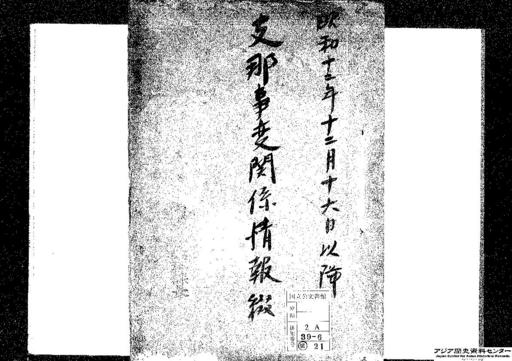 昭和十二年十二月十六日以降
支那事変関係情報綴
国立公文書館
2A
39-6
21
アジア歴史資料センター
Japan Center for Asian Historical Records